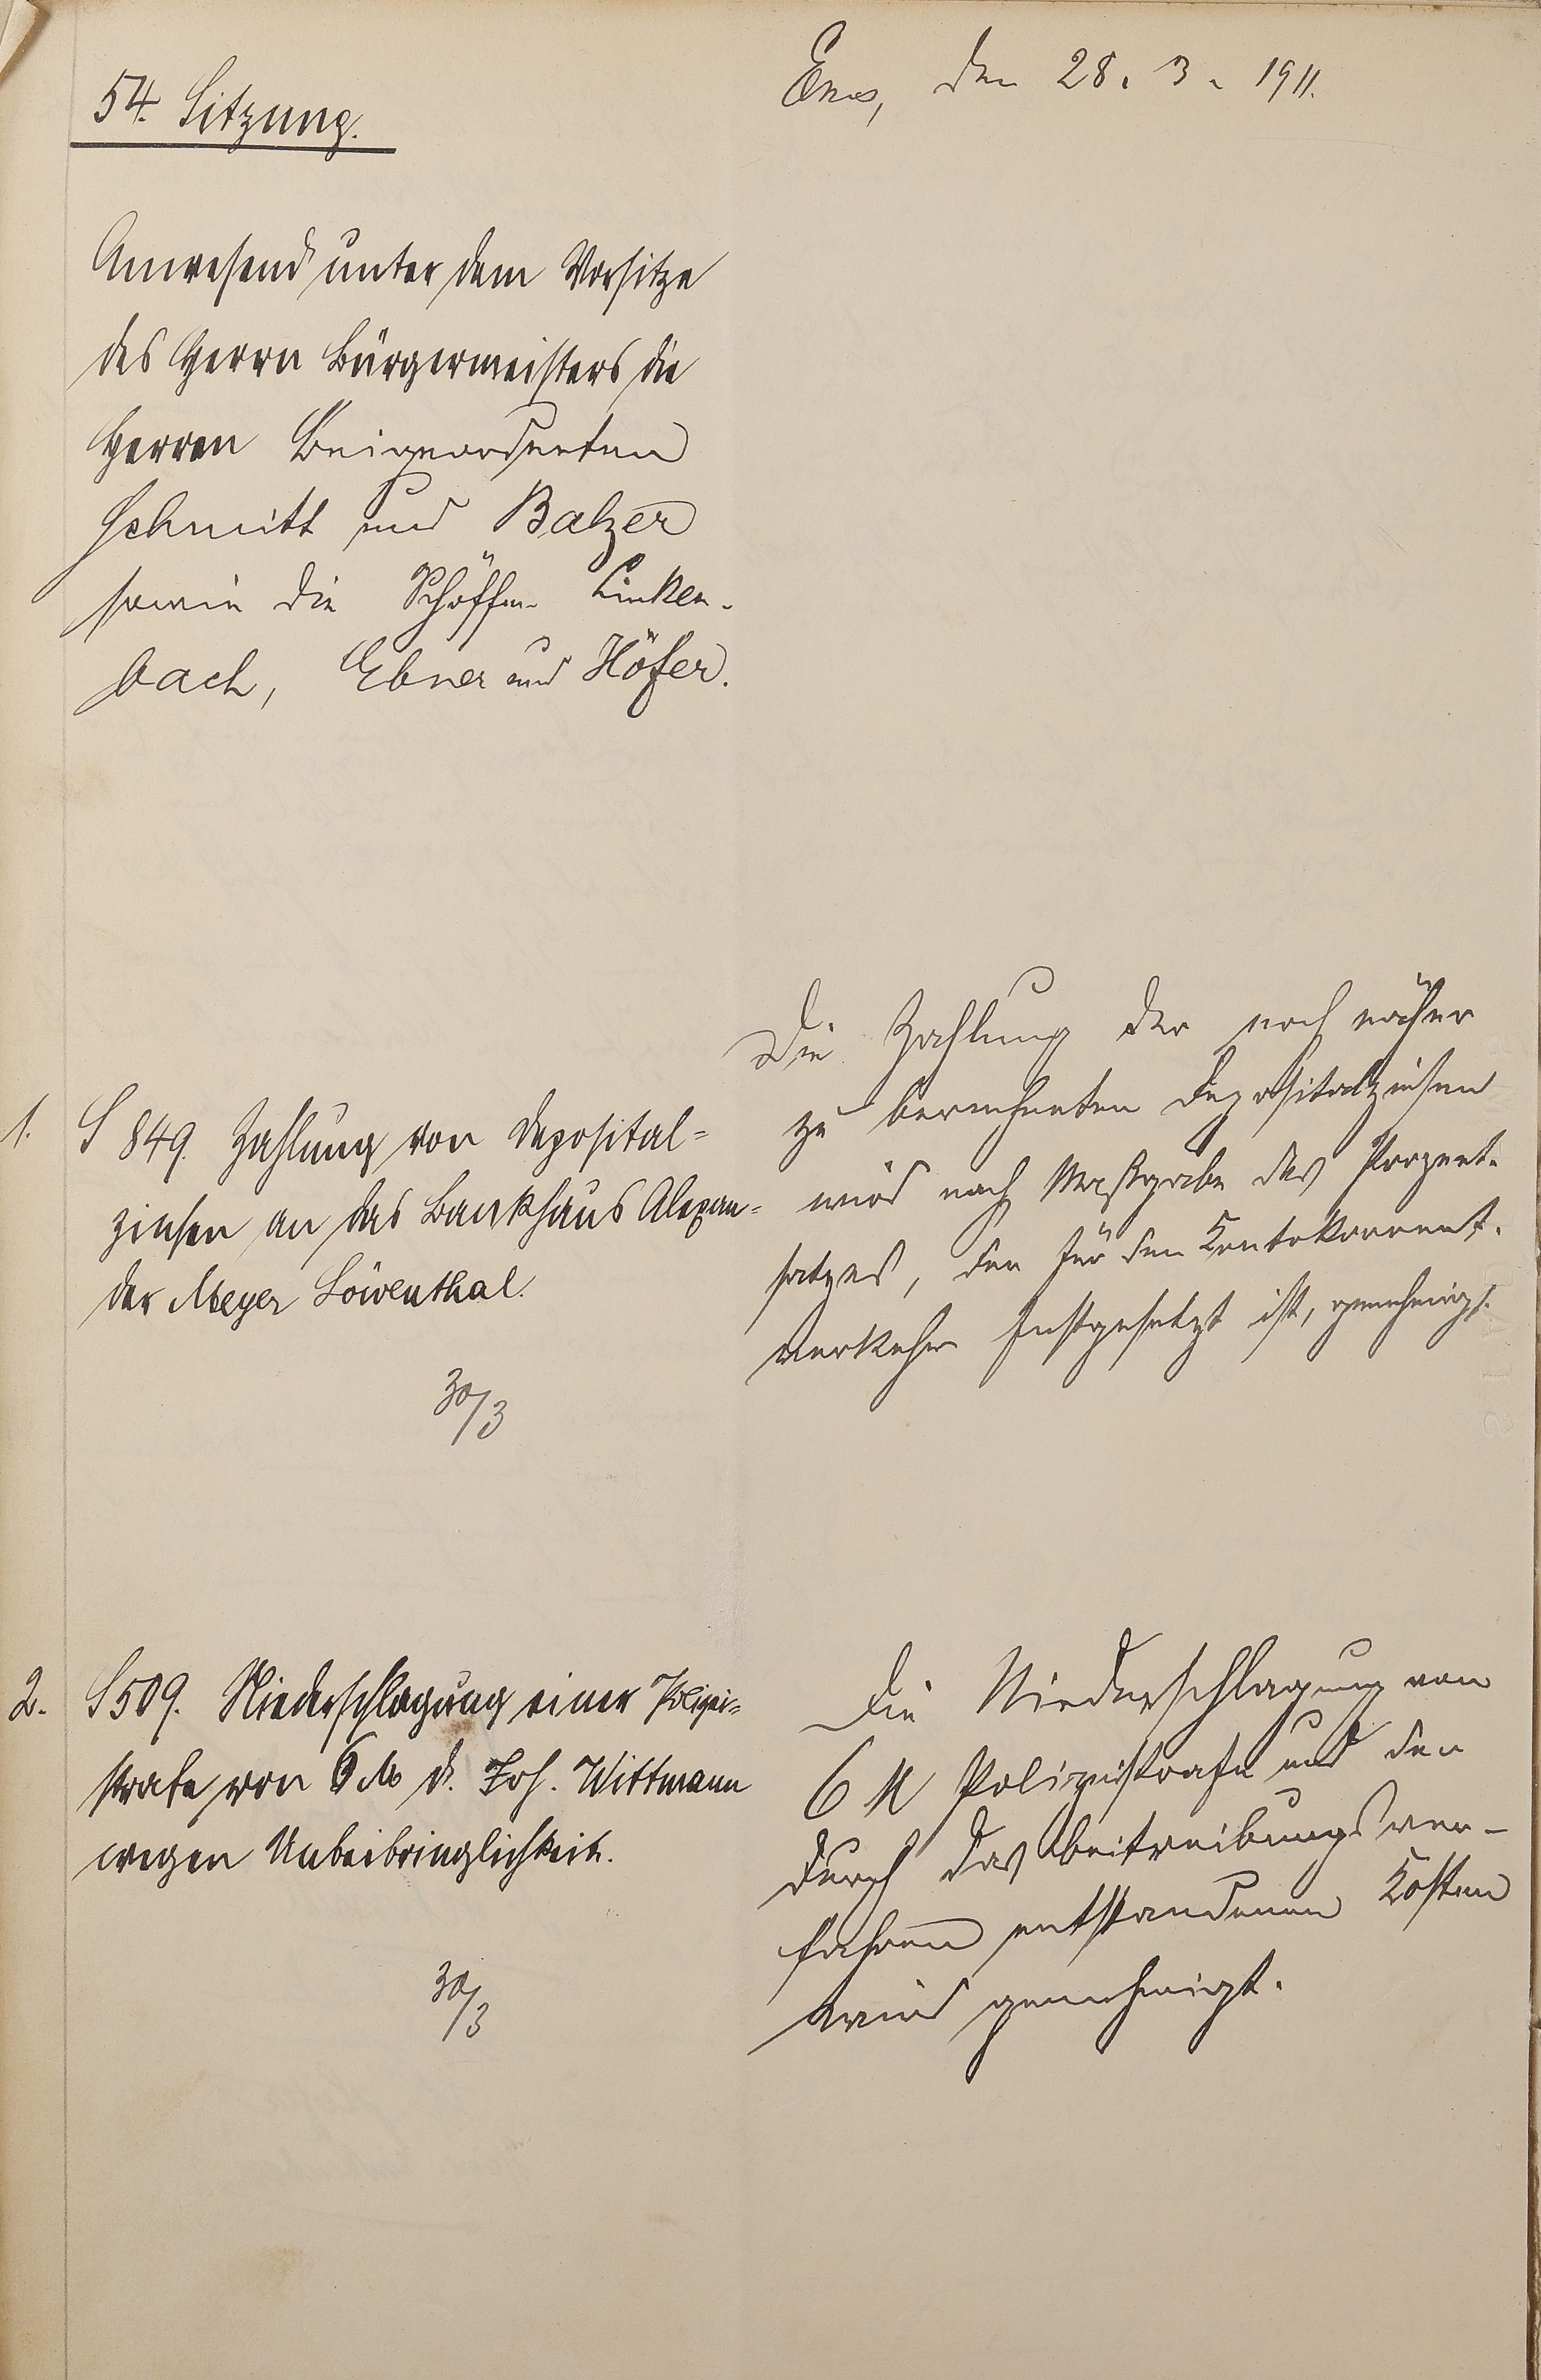 54. Sitzung.
Ems, den 28. 3. 1911.
Anwesend unter dem Vorsitze
des Herrn Bürgermeisters die
Herren Beigeordneten
Schmitt und Balzer
sowie die Schöffen Linken-
bach, Ebner und Höfer.
1. S 849. Zahlung von Deposital=
zinsen an das Bankhaus Alexan=
der Meyer Löwenthal.
30/3
Die Zahlung der noch näher
zu berechneten Depositalzinsen
wird nach Maßgabe des Prozent-
satzes, der für den Kontokorrent-
verkehr festgesetzt ist, genehmigt.
2. S 509. Niederschlagung einer Polizei=
strafe von 6 M d. Joh. Wittmann
wegen Unbeibringlichkeit.
30/3
Die Niederschlagung von
6 M Polizeistrafe und den
durch das Beitreibungsver-
fahren entstandenen Kosten
wird genehmigt.